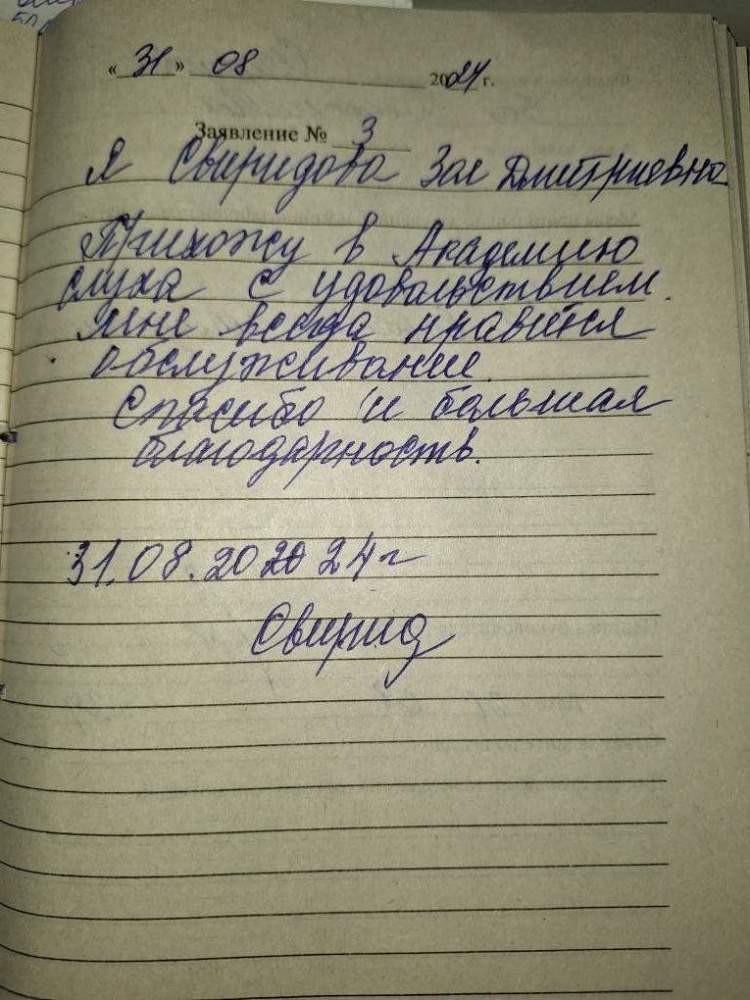 « 31 » 08 2024 г.
Заявление № 3
Я Свиридова Зоя Дмитриевна
Прихожу в Академию
слуха с удовольствием.
Мне всегда нравится
обслуживание.
Спасибо и большая
благодарность.
31.08.202024 г
Свирид